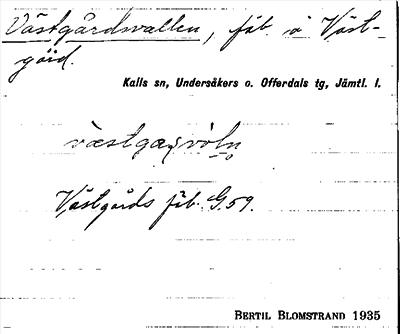 Västgårdsvallen, fäb. å Väst-
gård.
Kalls sn, Undersåkers o. Offerdals tg, Jämtl. l.
Västgårds fäb. G.59.
BERTIL BLOMSTRAND 1935